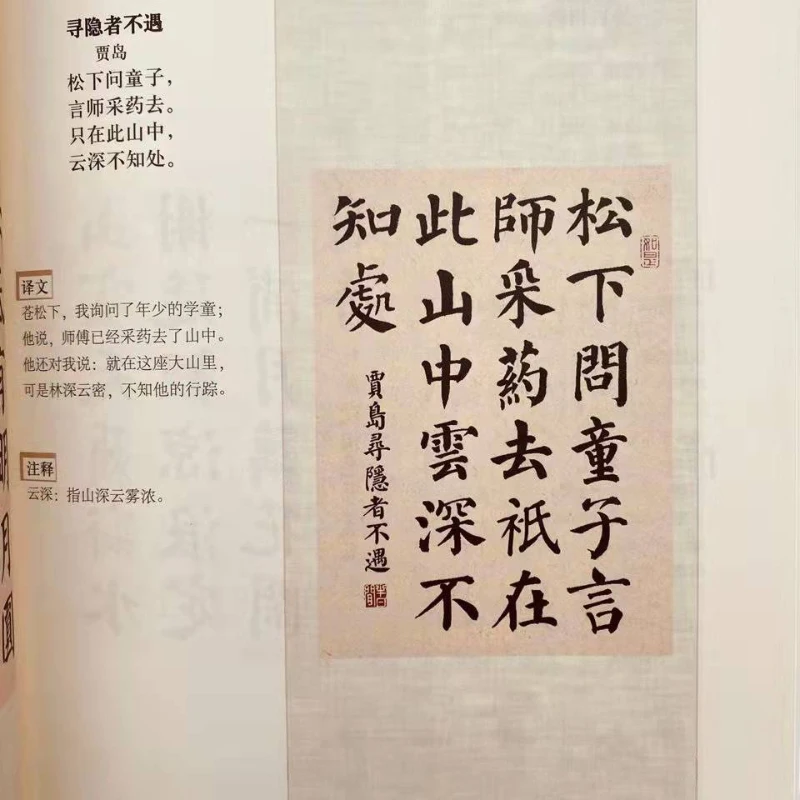 寻隐者不遇
贾岛
松下问童子，
言师采药去。
只在此山中，
云深不知处。
译文
苍松下，我询问了年少的学童；
他说，师傅已经采药去了山中。
他还对我说：就在这座大山里，
可是林深云密，不知他的行踪。
注释
云深：指山深云雾浓。
松下問童子言
師采葯去祇在
此山中雲深不
知處
賈島尋隱者不遇
如是